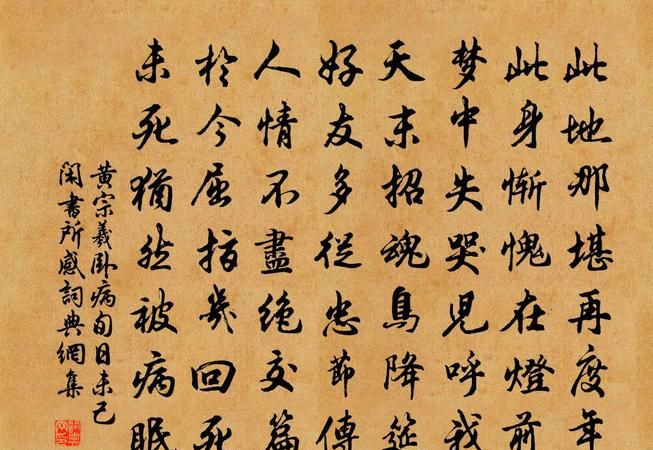 此地那堪再度年
此身慚愧在燈前
梦中失哭児呼我
天末招魂鳥降筵
好友多従忠節傳
人情不盡絶交篇
於今屈指幾回死
未死猶然被病眠
黄宗羲卧病旬日未已
閑書所感詞典網集